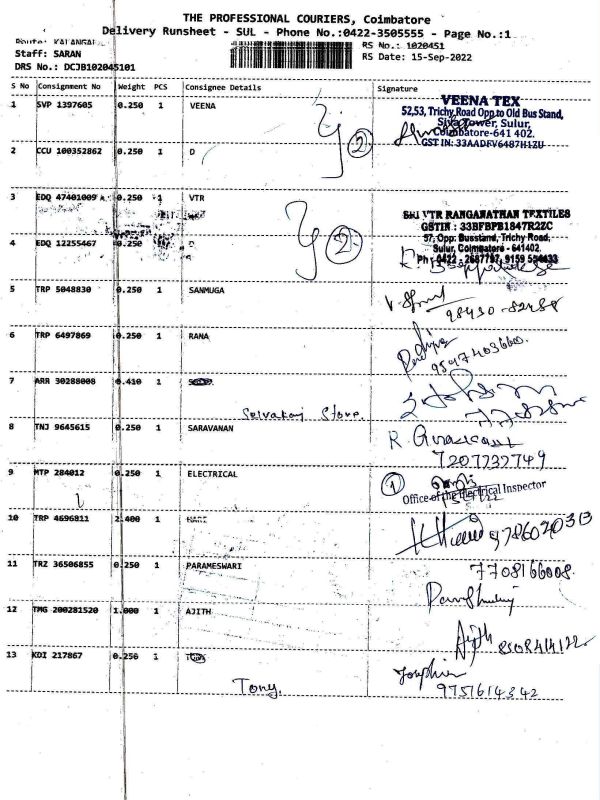 THE PROFESSIONAL COURIERS, Coimbatore
Delivery Runsheet - SUL - Phone No.:0422-3505555 - Page No.:1
Route: KALANGAL
Staff: SARAN
DRS No.: DCJB102045101
RS No.: 1020451
RS Date: 15-Sep-2022
S No Consignment No Weight PCS Consignee Details Signature
1 SVP 1397605 0.250 1 VEENA
VEENA TEX
52,53, Trichy Road Opp.to Old Bus Stand,
Siva Tower, Sulur,
Coimbatore-641 402.
GST IN: 33AADFV6487H1ZU
2
2 CCU 100352862 0.250 1 D
3 EDQ 47401009 0.250 1 VTR
SRI VTR RANGANATHAN TEXTILES
GSTIN : 33BFBPB1847R2ZC
57, Opp: Busstand, Trichy Road,
Sulur, Coimbatore - 641402.
2
4 EDQ 12255467 0.250 D
5 TRP 5048830 0.250 1 SANMUGA
98430-82488
6 TRP 6497869 0.250 1 RANA
7 ARR 30288008 0.410 1
Selvakani Store.
8 TNJ 9645615 0.250 1 SARAVANAN
7207737749
9 MTP 284012 0.250 1 ELECTRICAL
1
Office of the Electrical Inspector
10 TRP 4696811 2.400 1 HARI
11 TRZ 36506855 0.250 1 PARAMESWARI
7708166008
12 TMG 200281520 1.000 1 AJITH
Ajith 8508414122
13 KDI 217867 0.250 1
Tony.
9751614342